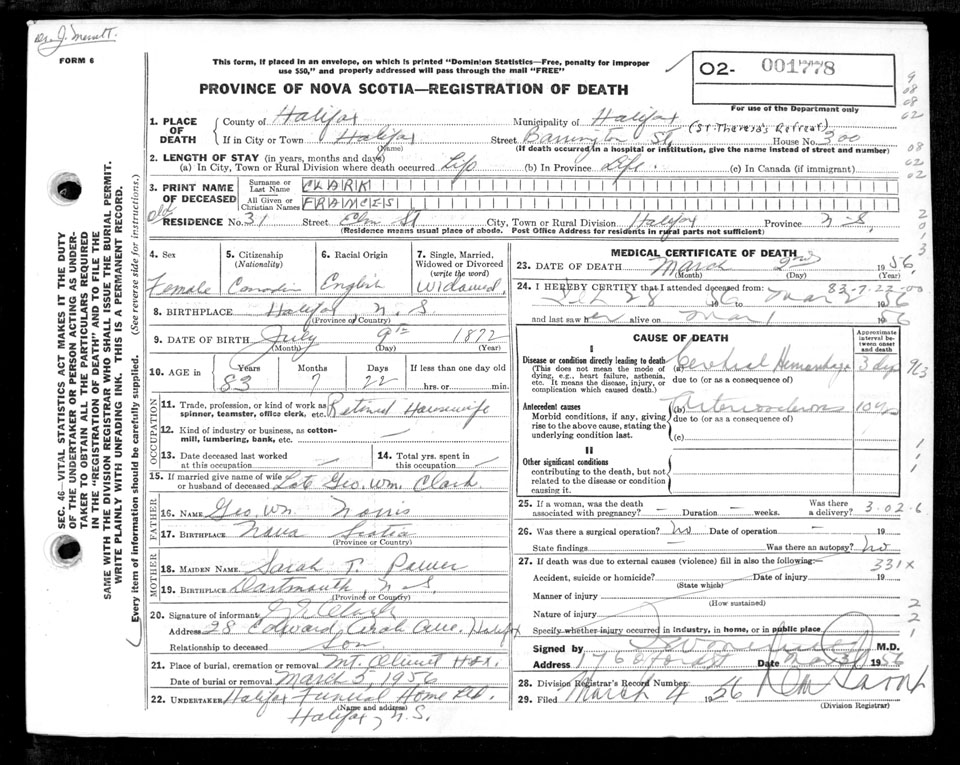 Dr. J. Merritt.
FORM 6
This form, if placed in an envelope, on which is printed "Dominion Statistics—Free, penalty for improper
use $50," and properly addressed will pass through the mail "FREE"
O2- 001778
PROVINCE OF NOVA SCOTIA—REGISTRATION OF DEATH
For use of the Department only
1. PLACE OF DEATH
County of Halifax Municipality of Halifax
(St Theresa's Retreat)
If in City or Town Halifax Street Barrington St. House No. 300
(Name) (If death occurred in a hospital or institution, give the name instead of street and number)
2. LENGTH OF STAY (in years, months and days)
(a) In City, Town or Rural Division where death occurred Life (b) In Province Life. (c) In Canada (if immigrant)
3. PRINT NAME OF DECEASED
Surname or Last Name CLARK
All Given or Christian Names FRANCES
RESIDENCE No. 31 Street Elm St City, Town or Rural Division Halifax Province N.S.
(Residence means usual place of abode. Post Office Address for residents in rural parts not sufficient)
4. Sex
Female
5. Citizenship (Nationality)
6. Racial Origin
English
7. Single, Married, Widowed or Divorced (write the word)
Widowed.
8. BIRTHPLACE Halifax N.S.
(Province or Country)
9. DATE OF BIRTH July 9th 1872
(Month) (Day) (Year)
10. AGE in
Years Months Days If less than one day old
83 7 22 hrs. or min.
OCCUPATION
11. Trade, profession, or kind of work as spinner, teamster, office clerk, etc. Retired Housewife
12. Kind of industry or business, as cotton-mill, lumbering, bank, etc. —
13. Date deceased last worked at this occupation —
14. Total yrs. spent in this occupation —
15. If married give name of wife or husband of deceased Late Geo. Wm. Clark
FATHER
16. NAME Geo. Wm Norris
17. BIRTHPLACE Nova Scotia
(Province or Country)
MOTHER
18. MAIDEN NAME Sarah T. Power
19. BIRTHPLACE Dartmouth, N.S.
(Province or Country)
20. Signature of informant
Address 28 Edward Arab Ave. Halifax
Relationship to deceased Son.
21. Place of burial, cremation or removal Mt. Olivet Hfx.
Date of burial or removal March 5, 1956
22. UNDERTAKER Halifax Funeral Home Ltd.
(Name and address)
Halifax, N.S.
MEDICAL CERTIFICATE OF DEATH
23. DATE OF DEATH March 2nd 1956
(Month) (Day) (Year)
83-7-22-00
24. I HEREBY CERTIFY that I attended deceased from:
Feb 28 56 to Mar 2 1956
and last saw her alive on Mar 1 1956
CAUSE OF DEATH
Approximate interval between onset and death
I
Disease or condition directly leading to death
(This does not mean the mode of dying, e.g., heart failure, asthenia, etc. It means the disease, injury, or complication which caused death.)
(a) Cerebral Hemorrhage 3 days
due to (or as a consequence of)
Antecedent causes
Morbid conditions, if any, giving rise to the above cause, stating the underlying condition last.
(b) Arteriosclerosis 10 yrs
due to (or as a consequence of)
(c)
II
Other significant conditions
contributing to the death, but not related to the disease or condition causing it.
25. If a woman, was the death associated with pregnancy? — Duration — weeks. Was there a delivery?
3-02-6
26. Was there a surgical operation? No Date of operation — 19
State findings Was there an autopsy? No
27. If death was due to external causes (violence) fill in also the following:—
331X
Accident, suicide or homicide? Date of injury 19
(State which)
Manner of injury
(How sustained)
Nature of injury
Specify whether injury occurred in industry, in home, or in public place
Signed by M.D.
Address Date 1956
28. Division Registrar's Record Number
29. Filed March 4 1956
(Division Registrar)
SEC. 46—VITAL STATISTICS ACT MAKES IT THE DUTY
OF THE UNDERTAKER OR PERSON ACTING AS UNDER-
TAKER TO OBTAIN ALL THE PARTICULARS REQUIRED
IN THE "REGISTRATION OF DEATH" AND TO FILE THE
SAME WITH THE DIVISION REGISTRAR WHO SHALL ISSUE THE BURIAL PERMIT.
WRITE PLAINLY WITH UNFADING INK. THIS IS A PERMANENT RECORD.
Every item of information should be carefully supplied. (See reverse side for instructions.)